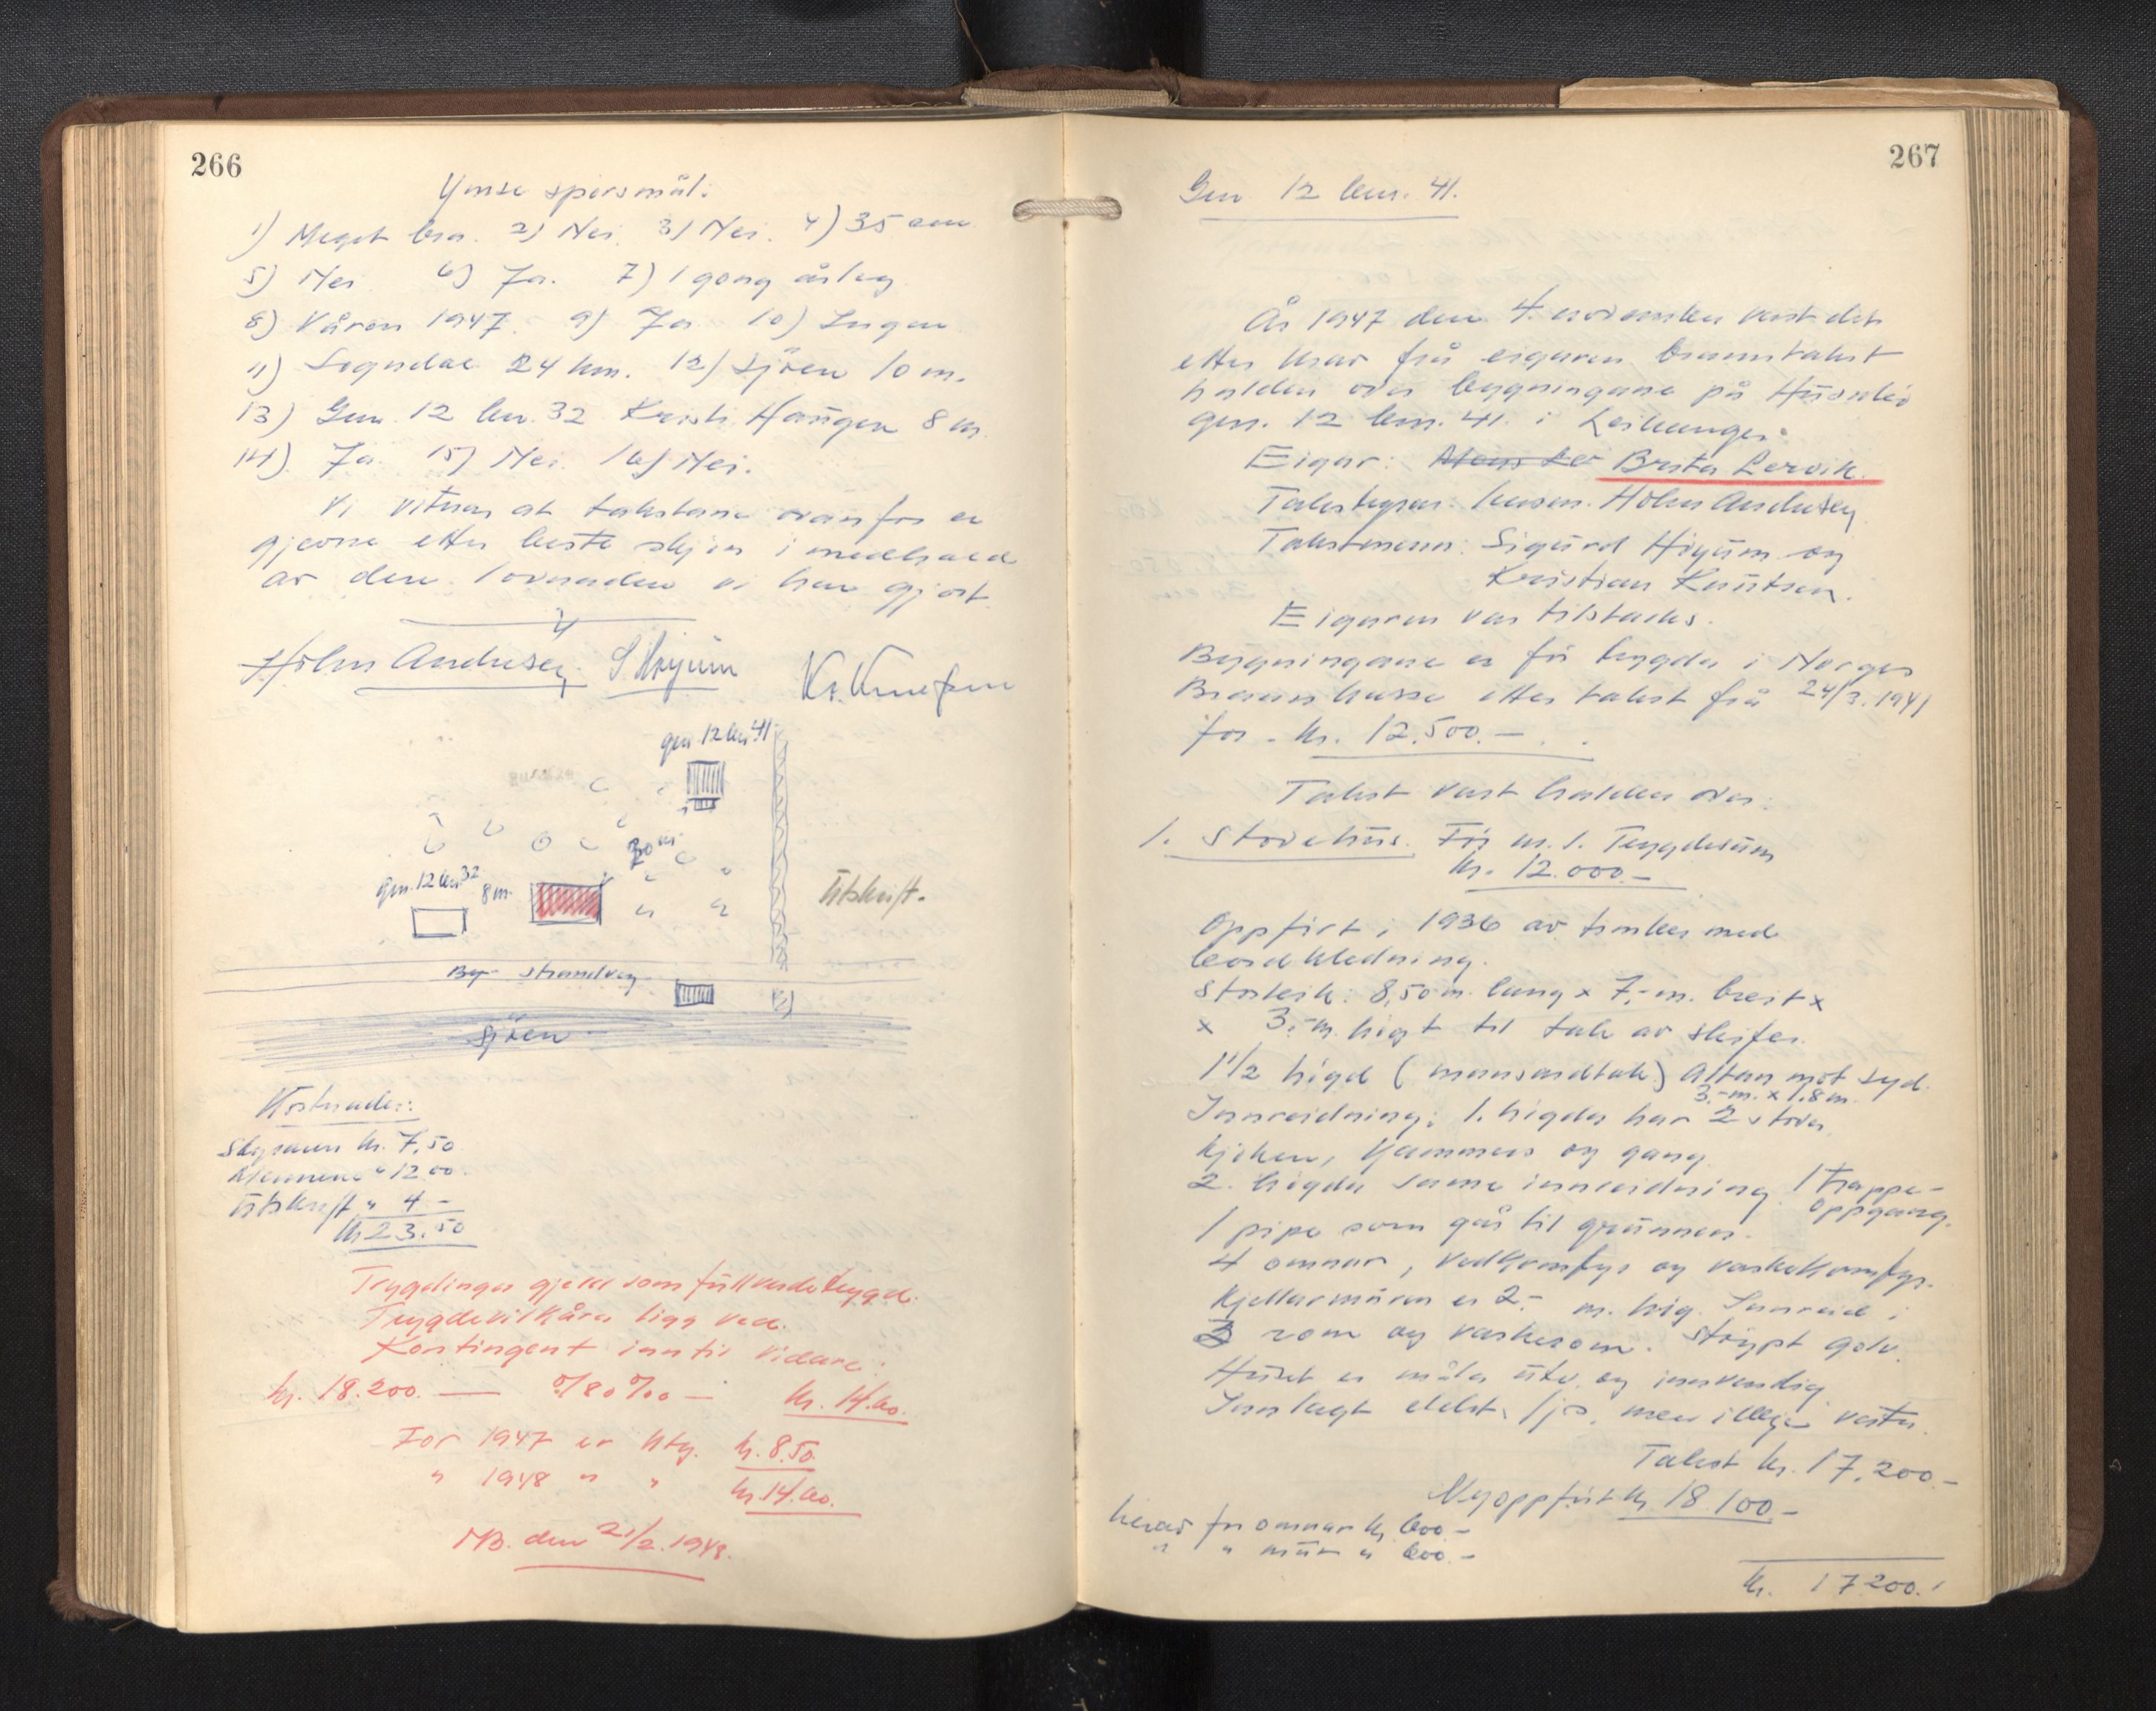 266
Ymse spørsmål:
1) Meget bra. 2) Nei. 3) Nei. 4) 35 cm
5) Nei 6) Ja. 7) 1 gong årleg
8) Våren 1947. 9) Ja 10) Ingen
11) Sogndal 24 km. 12) Sjøen 10 m.
13) Gnr. 12 bnr. 32 Haugen 8 m
14) Ja. 15) Nei. 16) Nei.
Vi vitnar at takstane ovanfor er
gjevne etter beste skjøn i medhald
av den lovnaden vi har gjort.
Holm Andresen S. Høyum Kr. Knutsen
gnr. 12 bnr. 41
30 m
gnr. 12 bnr. 32
8 m.
Utskrift.
Strandveg
Sjøen
Kostnader:
Skysmenn kr. 7,50
Mennene " 12.00
Utskrift " 4 -
kr 23.50
Trygdinga gjeld som fullverdetrygd.
Trygdevilkåra ligg ved.
Kontingent inntil vidare:
kr. 18.200. — 0/80 ‰ — kr. 14.60.
For 1947 er ktg. kr. 8.50.
" 1948 " " kr. 14.60.
NB. den 21/2. 1948.
267
Gnr 12 bnr. 41.
År 1947 den 4. november vart det
etter krav frå eigaren branntakst
halden over bygningane på
gnr. 12 bnr. 41. i Leikanger.
Eigar: Brita Lervik.
Takstegrar: lensm. Holm Andresen
Takstmenn: Sigurd Høyum og
Kristian Knutsen.
Eigaren var tilstades.
Bygningane er før trygda i Norges
Brannkasse etter takst frå 24/3. 1941
for - kr. 12.500.-
Takst vart halden over:
1. Stovehus. Før nr. 1. Trygdesum
kr. 12.000.-
Oppført i 1936 av timber med
bordkledning.
Storleik: 8,50 m. lang x 7,- m. breit x
x 3.- m. høgt til tak av skifer.
1 1/2 høgd (mansardtak) Altan mot syd.
3.- m. x 1.8 m.
Innreidning: 1. høgda har 2 stover
kjøken, kammers og gang
2. høgda same innreidning. 1 trappe-
oppgang.
1 pipe som går til grunnen.
4 omnar, vedkomfyr og vaskekomfyr.
Kjellarmuren er 2.- m. høg. Innreid i
3 rom og vaskerom. Støypt golv.
Huset er måla utv. og innvendig
Innlagt elektr. ljos, men ikkje vatn.
Takst kr. 17.200.-
Nyoppført kr. 18.100.-
herav for omnar kr. 600.-
" " mur " 600.-
kr. 17200.-